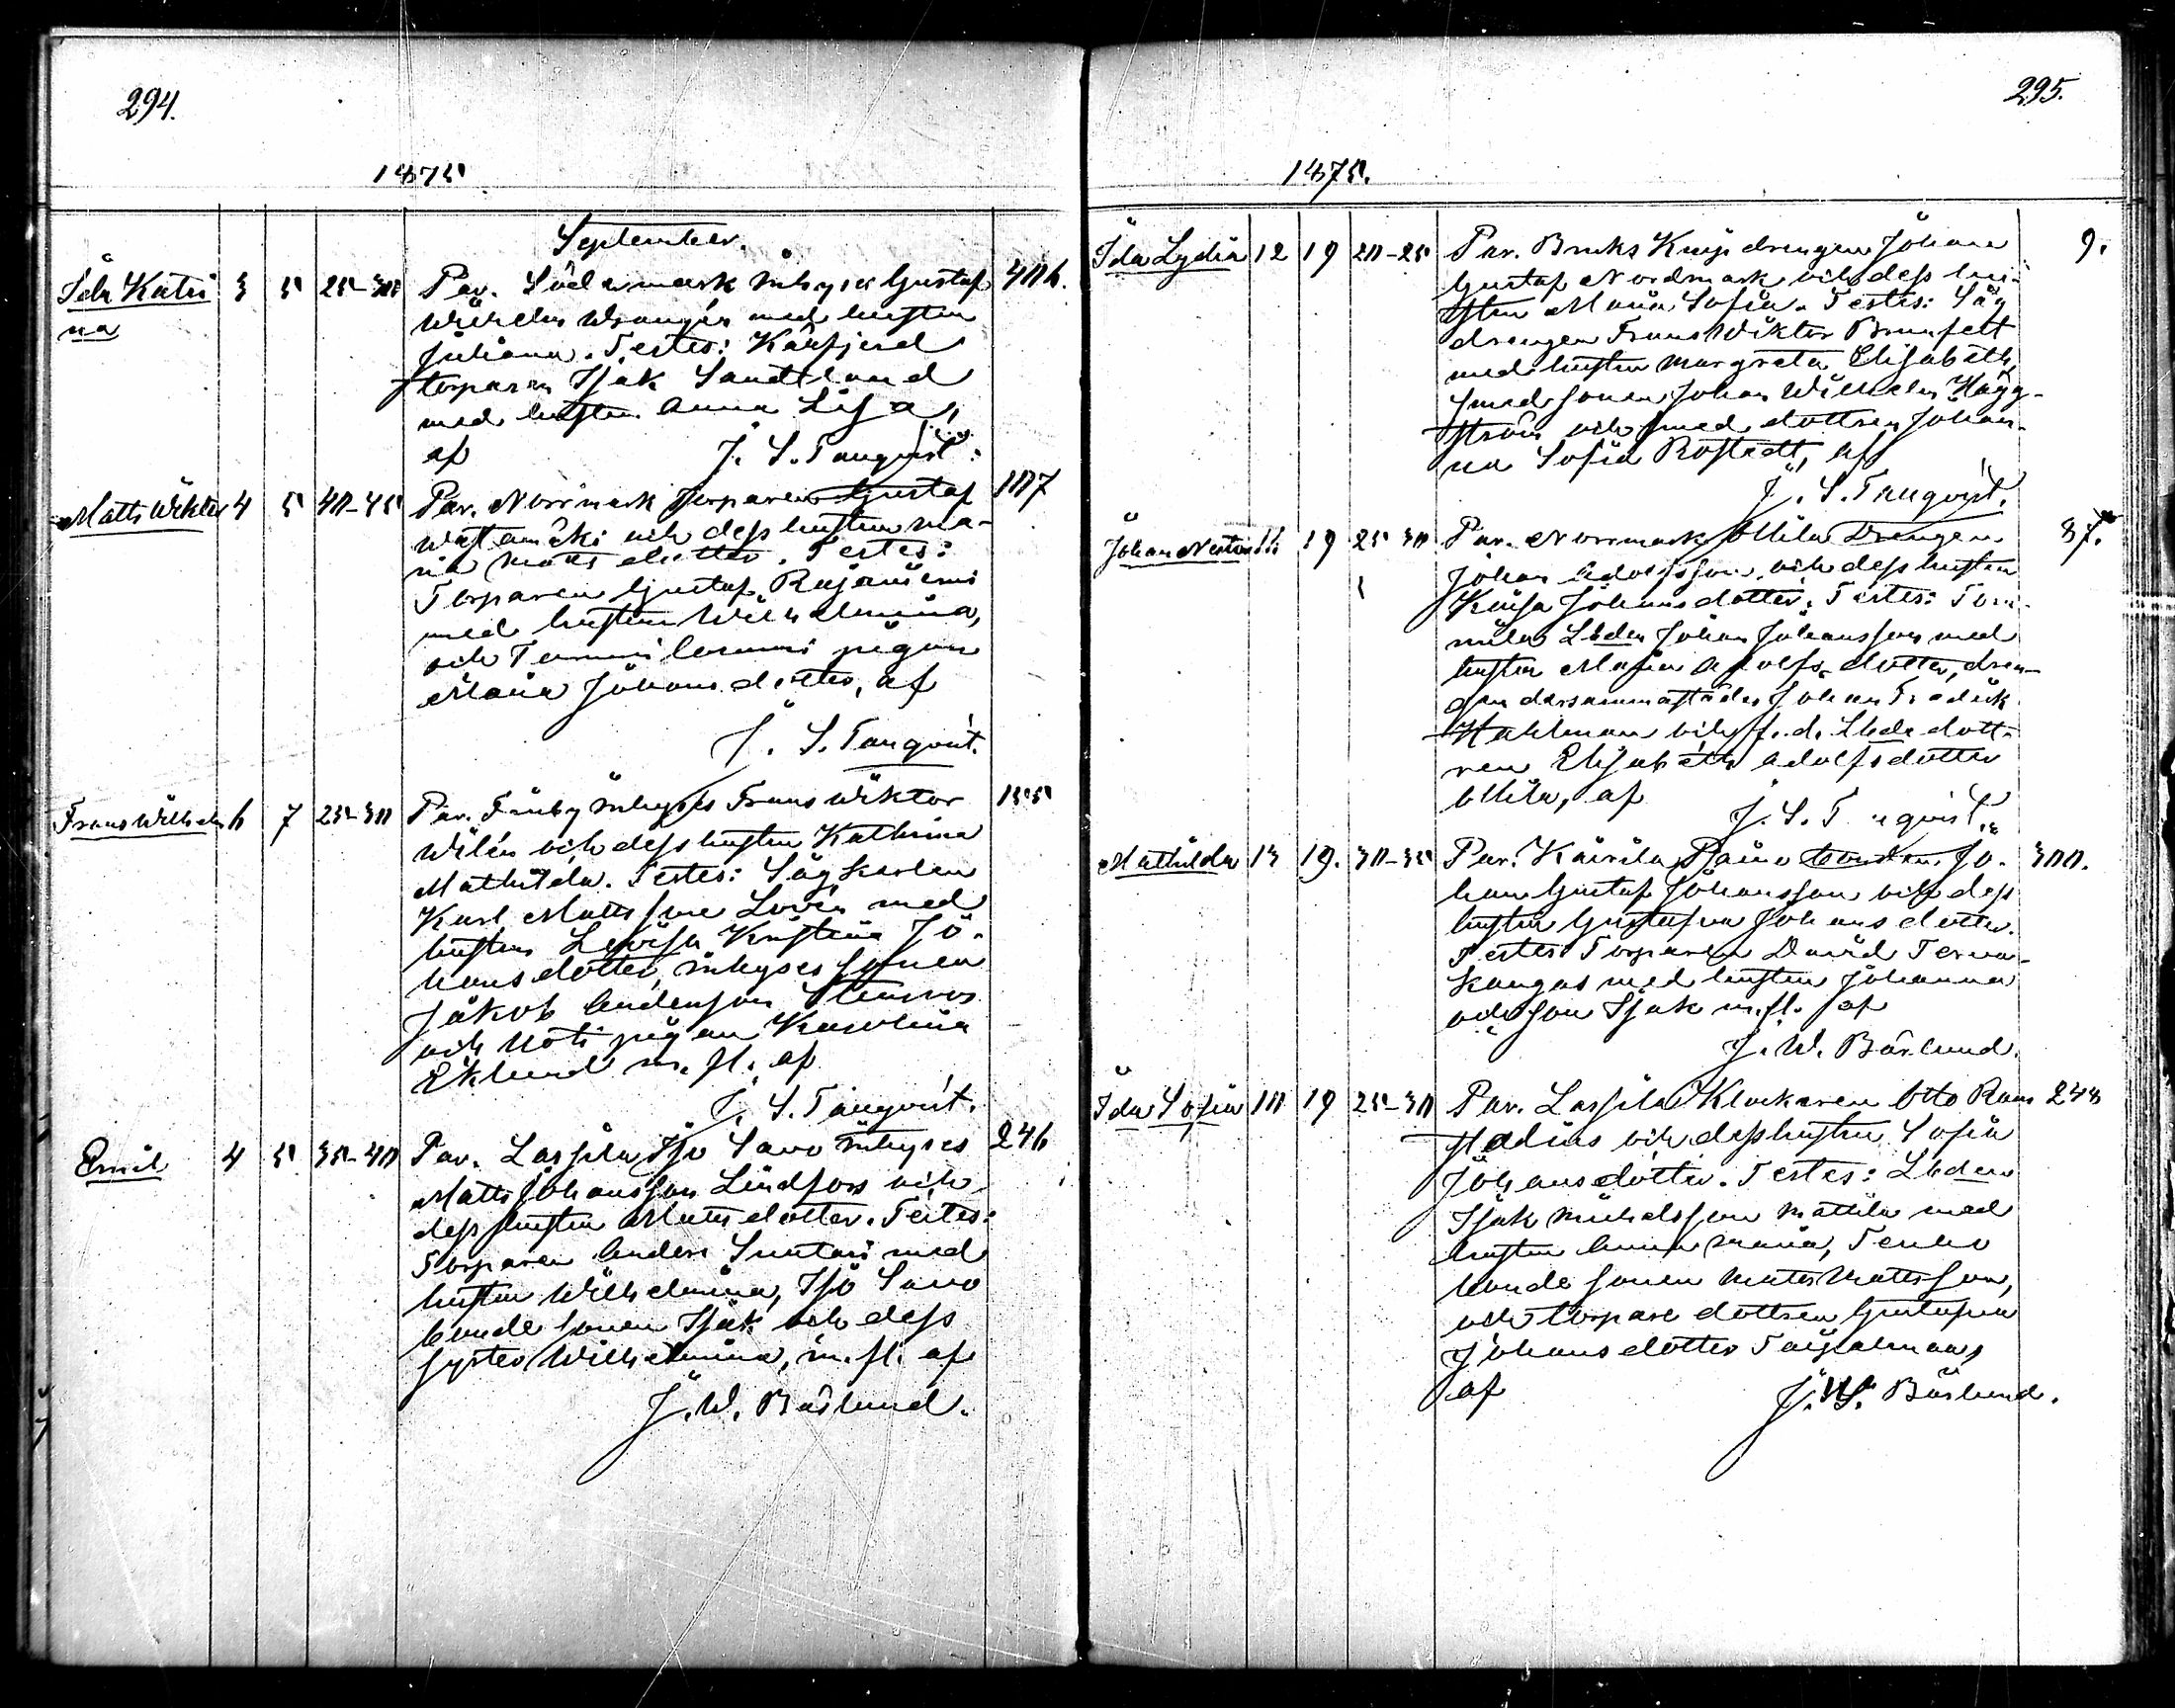 294.
1875
September.
Ida Katri
na
3 5 25-30 Par. Södermark Inhyses Gustaf 306.
Wilhelm med hustru
Juliana. Testes: Kärfjerd
torparen Isak Sandstrand
med hustru Anna Lisa,
af J. S. Tanqvist.
Matts Wiktor 4 5 40-45 Par. Norrmark Torparen Gustaf 107
och dess hustru Ma-
ria Matts dotter. Testes:
Torparen Gustaf Rajaniemi
med hustru Wilhelmina,
och pigan
Maria Johans dotter, af
J. S. Tanqvist.
Frans Wilhelm 6 7 25-30 Par. Finby Inhyses Frans Wiktor 155
Wilén och dess hustru Kathrina
Mathilda. Testes: Sågkarlen
Karl Mattsson Lovén med
hustru Lovisa Kristina Jo-
hans dotter, inhyses sonen
Jakob Andersson Stenroos
och Noti pigan Karolina
Eklund m. fl. af
J. S. Tanqvist.
Emil 4 5 35-40 Par. Lassila Iso Savo Inhyses 246
Matts Johansson Lindfors och
dess hustru Matts dotter. Testes:
Torparen Anders Suntari med
hustru Wilhelmina, Iso Savo
bonde sonen Isak och dess
syster Wilhelmina, m. fl. af
J. W. Bärlund.
295.
1875.
Ida Lydia 12 19 20-25 Par. Bruks drengen Johan 9.
Gustaf Nordmark och dess hu-
stru Maria Sofia. Testes: Såg
drengen Frans Wiktor Brunfelt
med hustru Margreta Elisabeth,
smedssonen Johan Wilhelm Hägg-
ström och smed dottren Johan-
na Sofia Rostedt, af
J. S. Tanqvist.
Johan Nestor 16 19 25 30 Par. Norrmark Ollila Drengen 87.
Johan Adolfsson och dess hustru
Kaisa Johans dotter. Testes: Tom-
mila Lbden Johan Johansson med
hustru Maria Adolfs dotter, dren-
gen dersammastädes Johan Fredrik
Hahlman och f. d. Lbde dott-
ren Elisabeth Adolfsdotter
Ollila, af J. S. Tanqvist.
Mathilda 13 19. 30-35 Par. Kairila Paavo bonden Jo- 300.
han Gustaf Johansson och dess
hustru Gustafva Johans dotter.
Testes Torparen David Terva-
kangas med hustru Johanna
och son Isak m. fl. af
J. W. Bärlund.
Ida Sofia 10 19 25-30 Par. Lassila Klockaren Otto Ram 248
stadius och dess hustru Sofia
Johansdotter. Testes: Lbden
Isak Michelsson Mattila med
hustru Anna Maria, Tenho
bonde sonen Matts Mattsson,
och torpare dottren Gustafva
Johans dotter
af J. W. Bärlund.